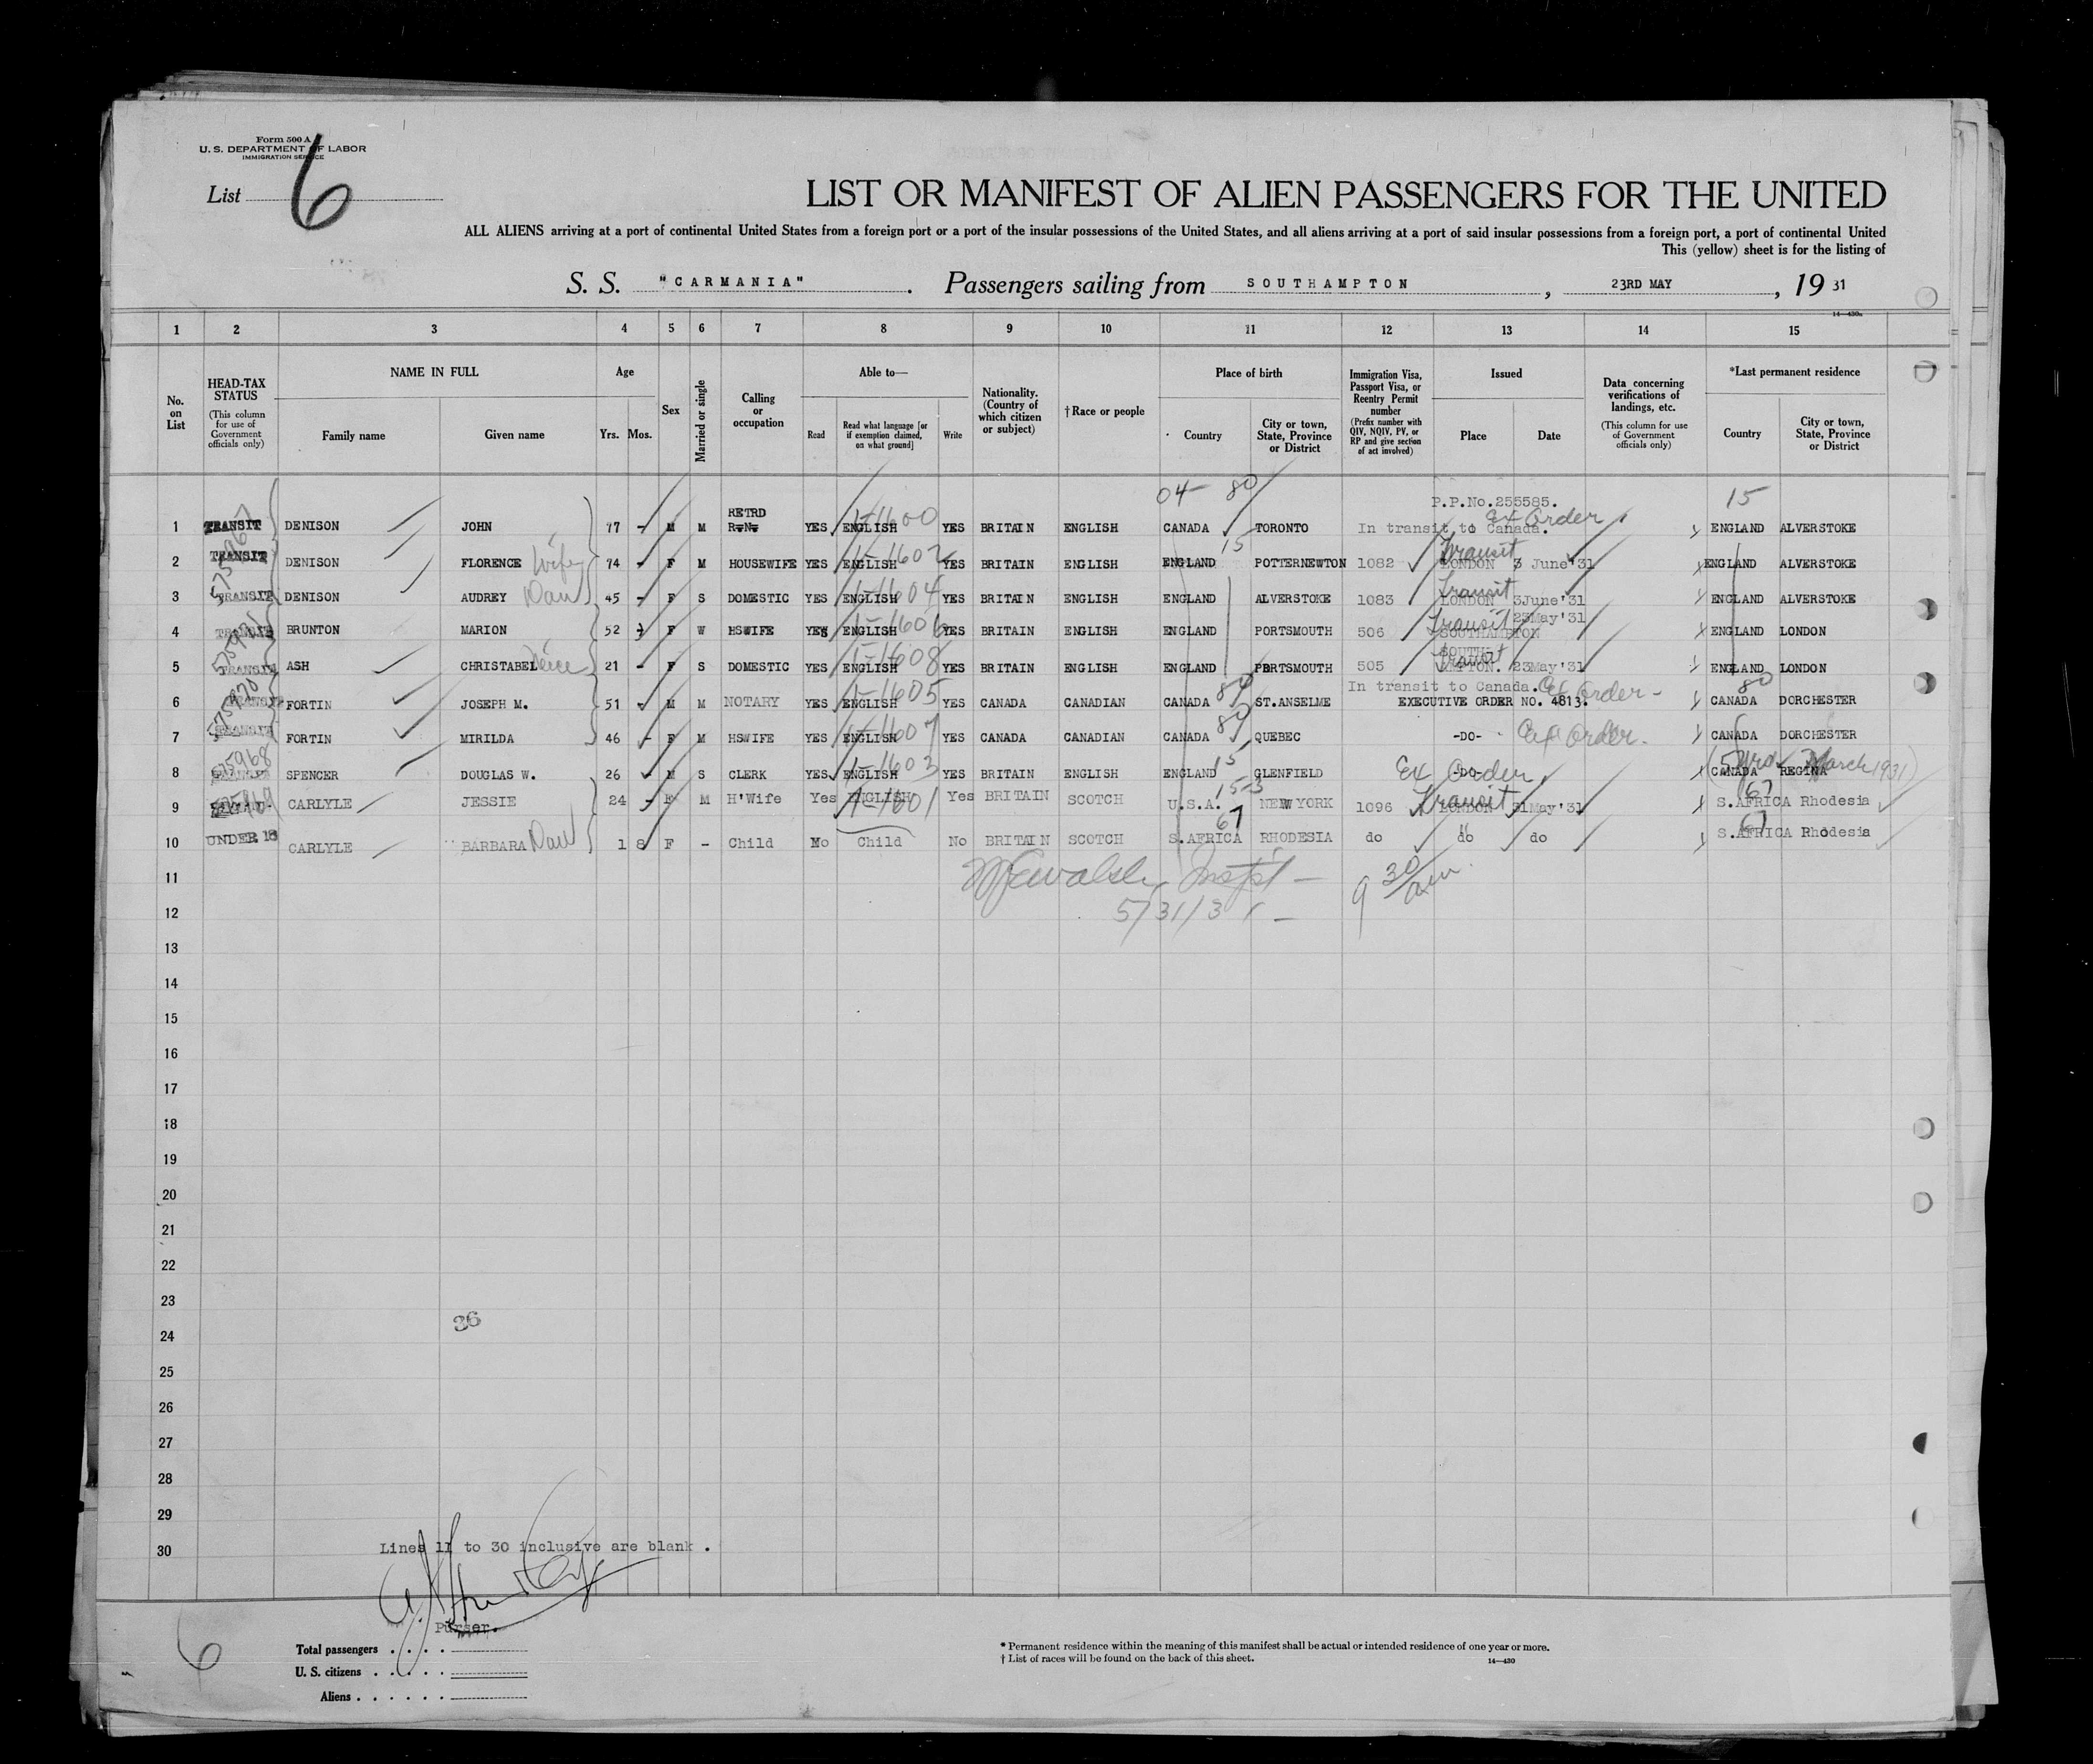 Form 500 A
U. S. DEPARTMENT OF LABOR
IMMIGRATION SERVICE
List 6
LIST OR MANIFEST OF ALIEN PASSENGERS FOR THE UNITED
ALL ALIENS arriving at a port of continental United States from a foreign port or a port of the insular possessions of the United States, and all aliens arriving at a port of said insular possessions from a foreign port, a port of continental United
This (yellow) sheet is for the listing of
S. S. "CARMANIA". Passengers sailing from SOUTHAMPTON, 23RD MAY, 1931
14—430a
1 2 3 4 5 6 7 8 9 10 11 12 13 14 15
No. on List
HEAD-TAX STATUS (This column for use of Government officials only)
NAME IN FULL Family name Given name
Age Yrs. Mos.
Sex
Married or single
Calling or occupation
Able to— Read Read what language [or if exemption claimed, on what ground] Write
Nationality. (Country of which citizen or subject)
†Race or people
Place of birth Country City or town, State, Province or District
Immigration Visa, Passport Visa, or Reentry Permit number (Prefix number with QIV, NQIV, PV, or RP and give section of act involved)
Issued Place Date
Data concerning verifications of landings, etc. (This column for use of Government officials only)
*Last permanent residence Country City or town, State, Province or District
04 80 P.P.No.255585. 15
1 TRANSIT DENISON JOHN 77 - M M RETRD R.N. YES ENGLISH 1-1600 YES BRITAIN ENGLISH CANADA TORONTO In transit to Canada. Ex Order ENGLAND ALVERSTOKE
2 TRANSIT DENISON FLORENCE wife 74 - F M HOUSEWIFE YES ENGLISH 1-1602 YES BRITAIN ENGLISH ENGLAND 15 POTTERNEWTON 1082 Transit LONDON 3 June'31 ENGLAND ALVERSTOKE
3 TRANSIT DENISON AUDREY Dau 45 - F S DOMESTIC YES ENGLISH 1-1604 YES BRITAIN ENGLISH ENGLAND ALVERSTOKE 1083 Transit LONDON 3June'31 ENGLAND ALVERSTOKE
4 TRANSIT BRUNTON MARION 52 - F W HSWIFE YES ENGLISH 1-1606 YES BRITAIN ENGLISH ENGLAND PORTSMOUTH 506 Transit SOUTHAMPTON 23May'31 ENGLAND LONDON
5 TRANSIT ASH CHRISTABEL Niece 21 - F S DOMESTIC YES ENGLISH 1-1608 YES BRITAIN ENGLISH ENGLAND PORTSMOUTH 505 Transit SOUTH- AMPTON. 23May'31 ENGLAND LONDON
6 TRANSIT FORTIN JOSEPH M. 51 - M M NOTARY YES ENGLISH 1-1605 YES CANADA CANADIAN CANADA 80 ST.ANSELME In transit to Canada. Ex Order - EXECUTIVE ORDER NO. 4813. CANADA 80 DORCHESTER
7 TRANSIT FORTIN MIRILDA 46 - F M HSWIFE YES ENGLISH 1-1607 YES CANADA CANADIAN CANADA 80 QUEBEC -DO- Ex Order. CANADA DORCHESTER
8 575968 SPENCER DOUGLAS W. 26 - M S CLERK YES ENGLISH 1-1603 YES BRITAIN ENGLISH ENGLAND 15 GLENFIELD Ex Order -DO- CANADA REGINA (5 yrs March 1931)
9 CARLYLE JESSIE 24 - F M H'Wife Yes ENGLISH 1-1601 Yes BRITAIN SCOTCH U.S.A. 15-3 NEW YORK 1096 Transit LONDON 21May'31 67 S.AFRICA Rhodesia
10 UNDER 18 CARLYLE BARBARA Dau 1 8 F - Child No Child No BRITAIN SCOTCH S.AFRICA 67 RHODESIA do do do 67 S.AFRICA Rhodesia
11 Inspt - 9 30 am
12 5/31/31 -
13
14
15
16
17
18
19
20
21
22
23
36
24
25
26
27
28
29
30 Lines 11 to 30 inclusive are blank.
Purser.
6
Total passengers
U. S. citizens
Aliens
* Permanent residence within the meaning of this manifest shall be actual or intended residence of one year or more.
† List of races will be found on the back of this sheet.
14—430